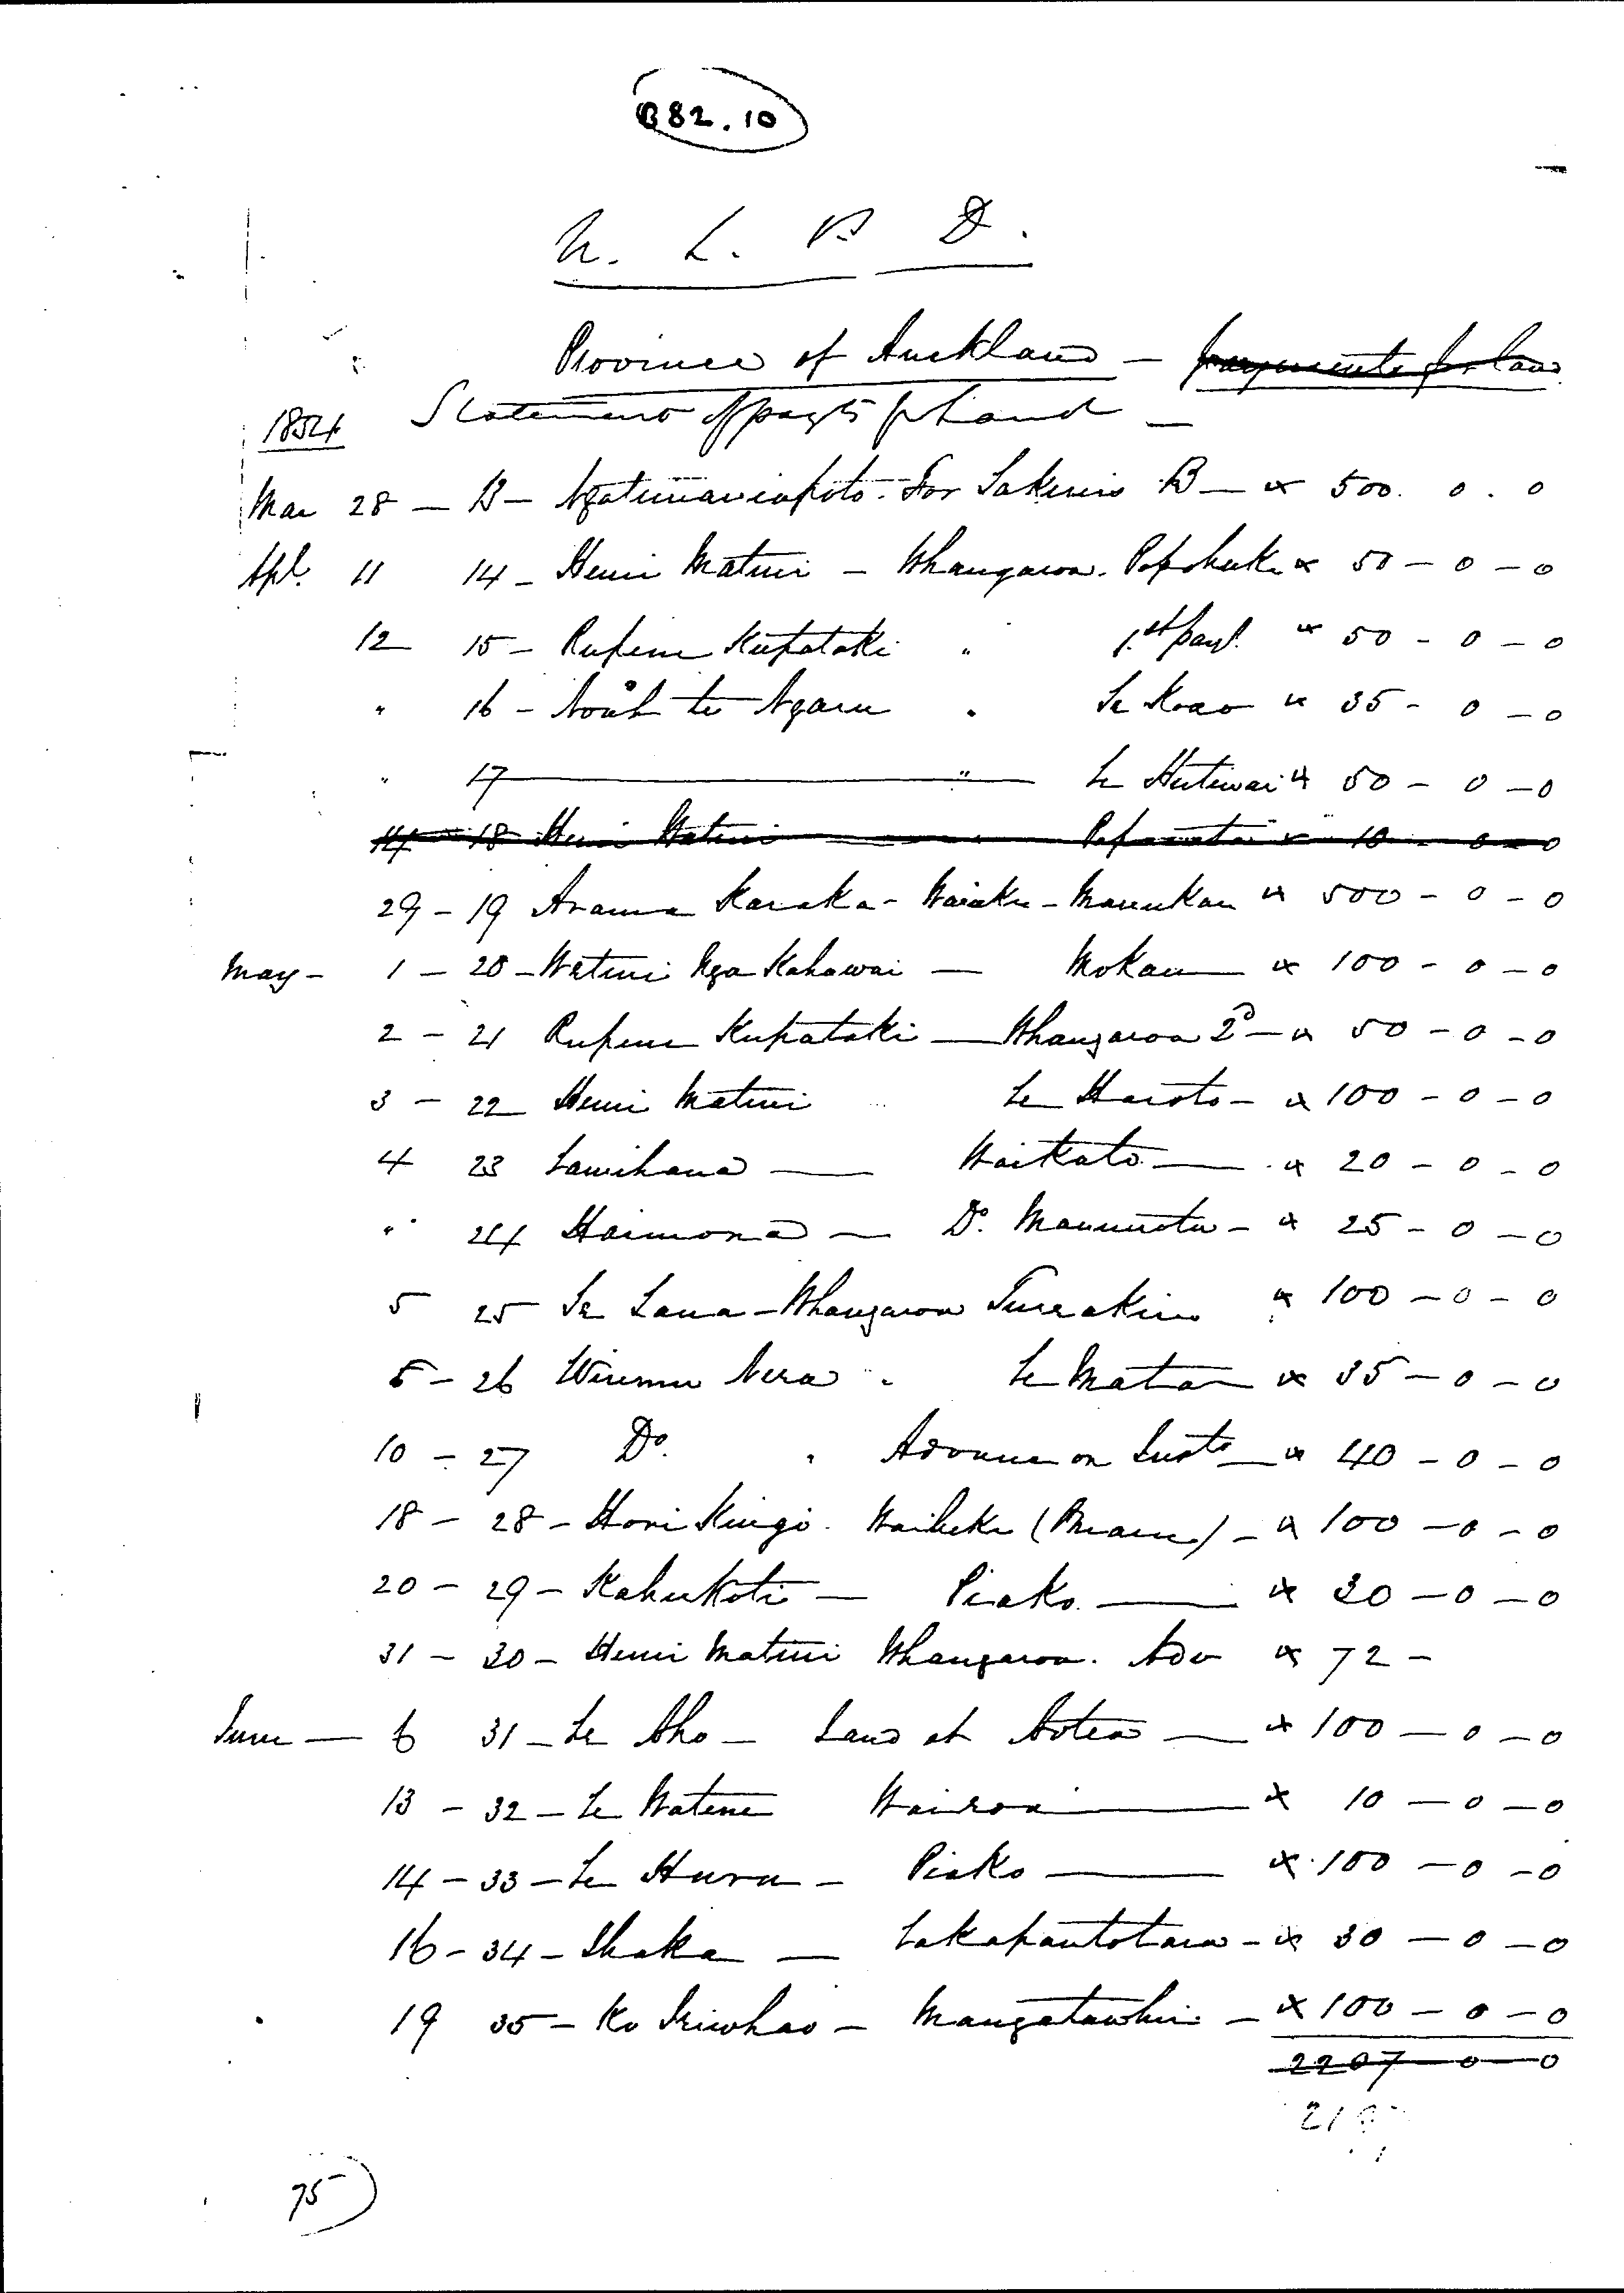 B82.10
N. L. P D.
Province of Auckland - payments for land
Statement of payts for Land -
1854
Mar 28 - 13 - Ngatimaniapoto. For Takiriu B - × 500. 0. 0
Apl. 11 14 - Hemi Matini - Whangaroa. × 50 - 0 - 0
12 15 - Rupene Kupataki " 1st payt. × 50 - 0 - 0
" 16 - te Ngaru " × 35 - 0 - 0
" 17 " Te Hutewai × 50 - 0 - 0
14 - 18 Hemi Matini × 10 - 0 - 0
29 - 19 Arama Karaka - Waiuku - Manukau × 500 - 0 - 0
May - 1 - 20 - Watini Nga Kahawai - Mokau × 100 - 0 - 0
2 - 21 Rupene Kupataki - Whangaroa 2d - × 50 - 0 - 0
3 - 22 Hemi Matini Te Haroto - × 100 - 0 - 0
4 23 Tamihana - Waikato - × 20 - 0 - 0
" 24 Haimona - Do. - × 25 - 0 - 0
5 25 Te Tana - Whangaroa × 100 - 0 - 0
5 - 26 Wiremu Nera " Te Mata × 35 - 0 - 0
10 - 27 Do. " Advance on × 40 - 0 - 0
18 - 28 - Hori Kingi. Waiheke - × 100 - 0 - 0
20 - 29 - Kahukoti - Piako - × 30 - 0 - 0
31 - 30 - Hemi Matini Whangaroa. Adv × 72 -
June - 6 31 - Te Aho - Land at Aotea - × 100 - 0 - 0
13 - 32 - Te Watene Wairoa × 10 - 0 - 0
14 - 33 - Te Hura - Piako - × 100 - 0 - 0
16 - 34 - Ihaka - Takapautotara - × 30 - 0 - 0
19 35 - Ko Iriwhao - Mangatawhiri - × 100 - 0 - 0
2207 - 0 - 0
75